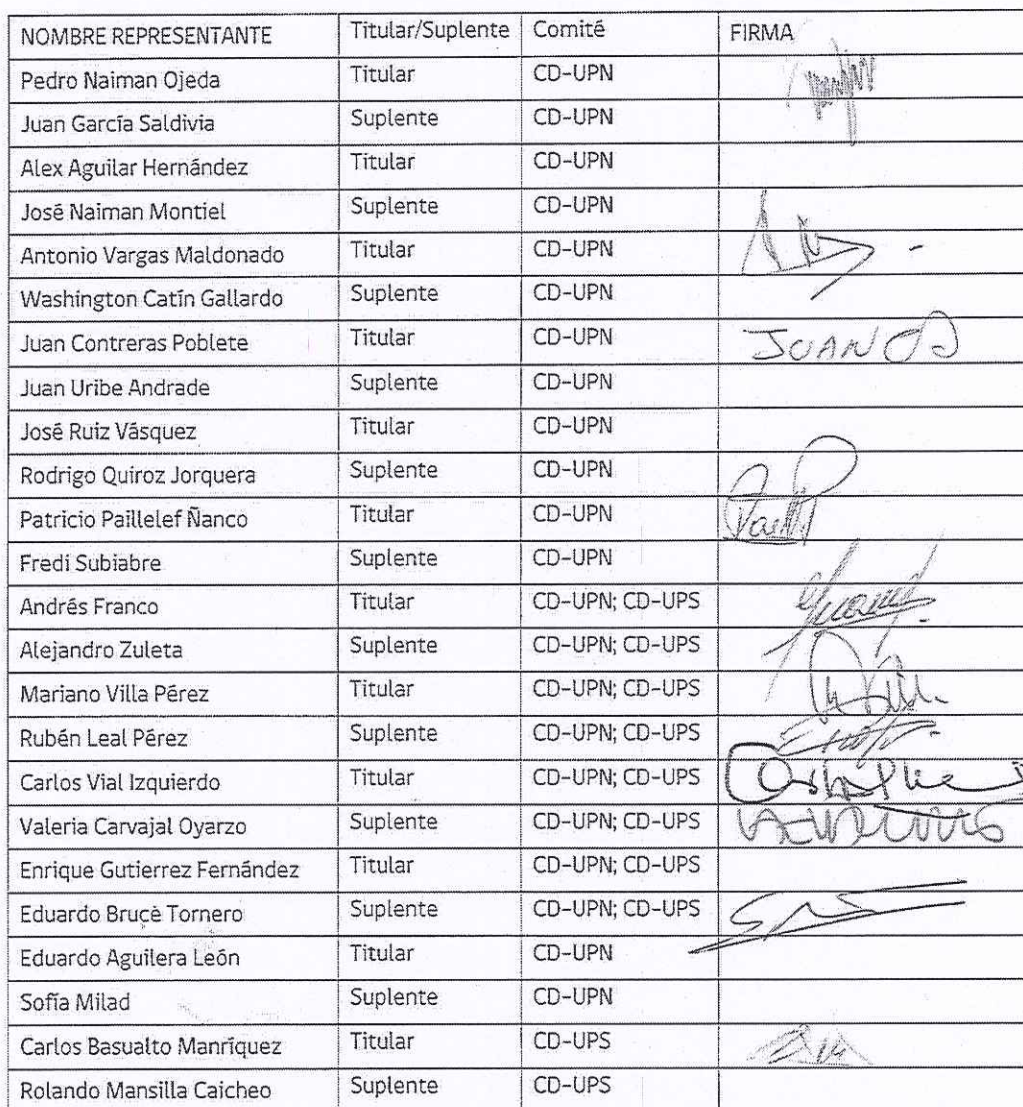 NOMBRE REPRESENTANTE Titular/Suplente Comité FIRMA
Pedro Naiman Ojeda Titular CD-UPN
Juan García Saldivia Suplente CD-UPN
Alex Aguilar Hernández Titular CD-UPN
José Naiman Montiel Suplente CD-UPN
Antonio Vargas Maldonado Titular CD-UPN
Washington Catín Gallardo Suplente CD-UPN
Juan Contreras Poblete Titular CD-UPN JUAN
Juan Uribe Andrade Suplente CD-UPN
José Ruiz Vásquez Titular CD-UPN
Rodrigo Quiroz Jorquera Suplente CD-UPN
Patricio Paillelef Ñanco Titular CD-UPN
Fredi Subiabre Suplente CD-UPN
Andrés Franco Titular CD-UPN; CD-UPS
Alejandro Zuleta Suplente CD-UPN; CD-UPS
Mariano Villa Pérez Titular CD-UPN; CD-UPS
Rubén Leal Pérez Suplente CD-UPN; CD-UPS
Carlos Vial Izquierdo Titular CD-UPN; CD-UPS
Valeria Carvajal Oyarzo Suplente CD-UPN; CD-UPS
Enrique Gutierrez Fernández Titular CD-UPN; CD-UPS
Eduardo Bruce Tornero Suplente CD-UPN; CD-UPS
Eduardo Aguilera León Titular CD-UPN
Sofía Milad Suplente CD-UPN
Carlos Basualto Manríquez Titular CD-UPS
Rolando Mansilla Caicheo Suplente CD-UPS